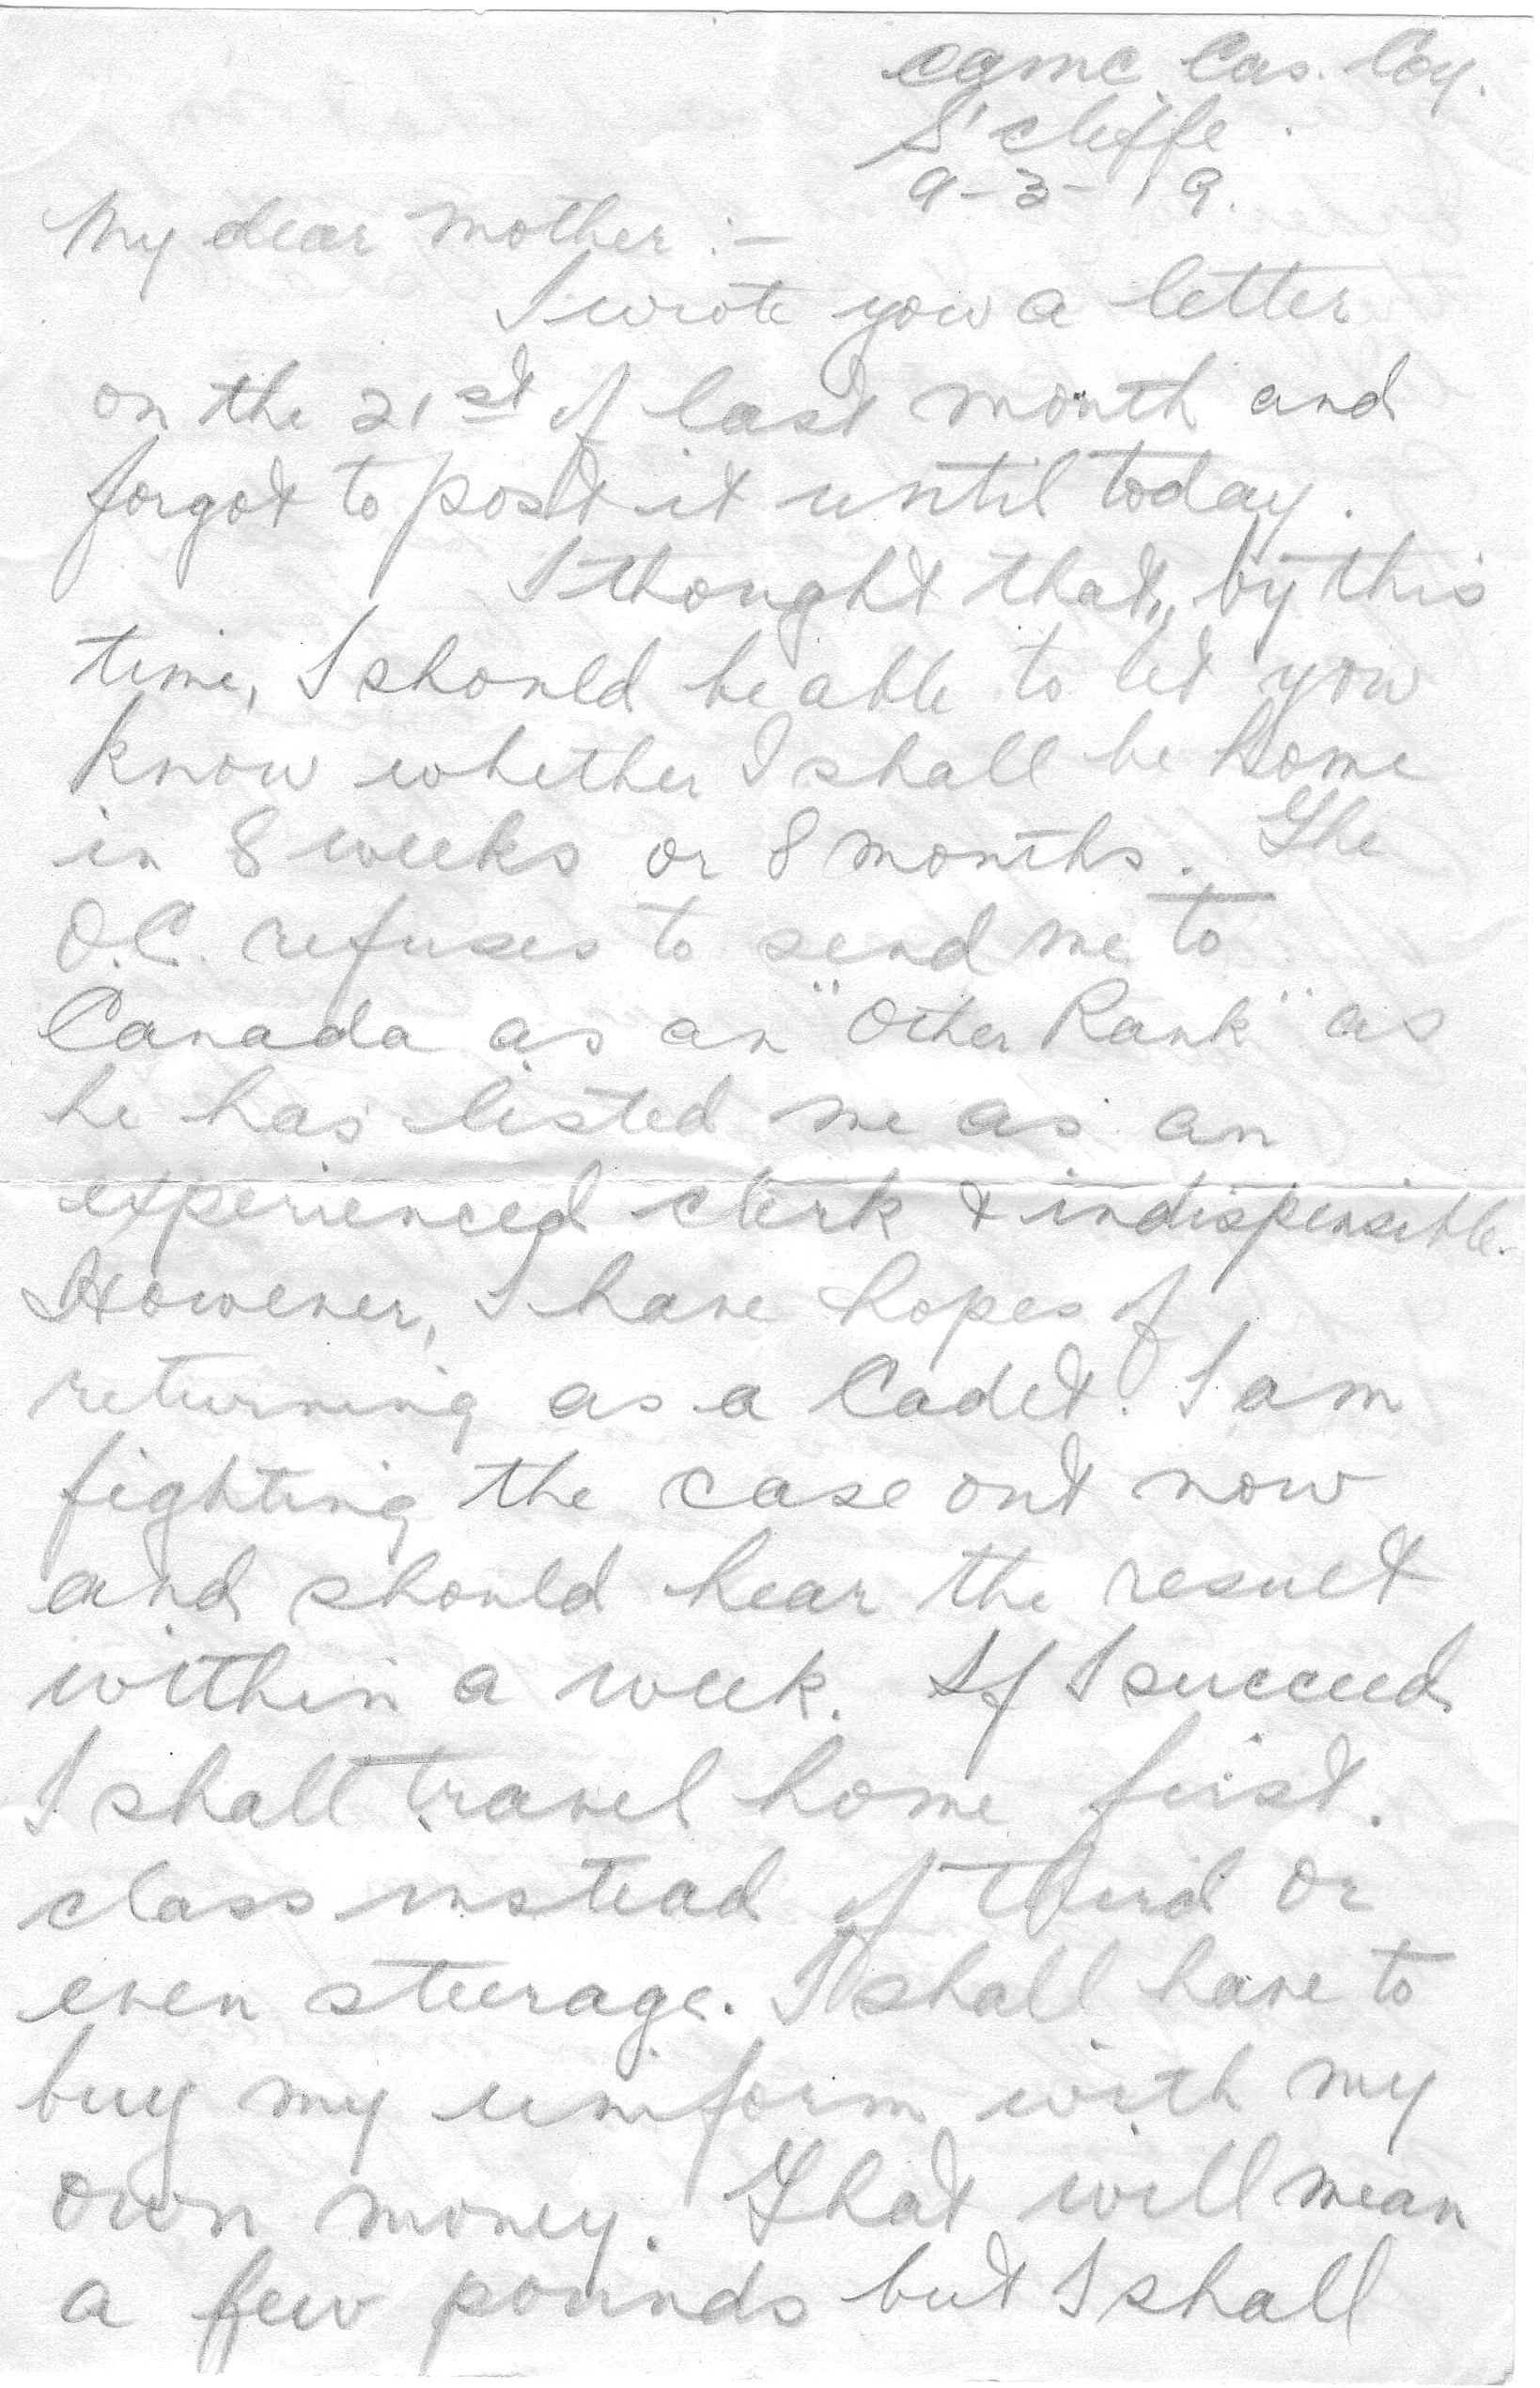 CAMC Cas. Coy.
S'cliffe.
9-3-19.
My dear mother :-
I wrote you a letter
on the 21st of last month and
forgot to post it until today.
I thought that, by this
time, I should be able to let you
know whether I shall be home
in 8 weeks or 8 months. The
O.C. refuses to send me to
Canada as an "Other Rank" as
he has listed me as an
experienced clerk & indispensible.
However, I have hopes of
returning as a Cadet. I am
fighting the case out now
and should hear the result
within a week. If I succeed
I shall travel home first.
class instead of third or
even steerage. I shall have to
buy my uniform with my
own money. That will mean
a few pounds but I shall